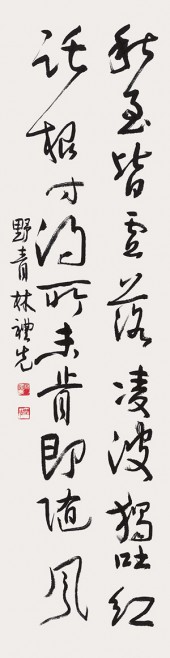 秋至皆零落凌波独吐红
託根方得所未肯即随风
野青林礼先